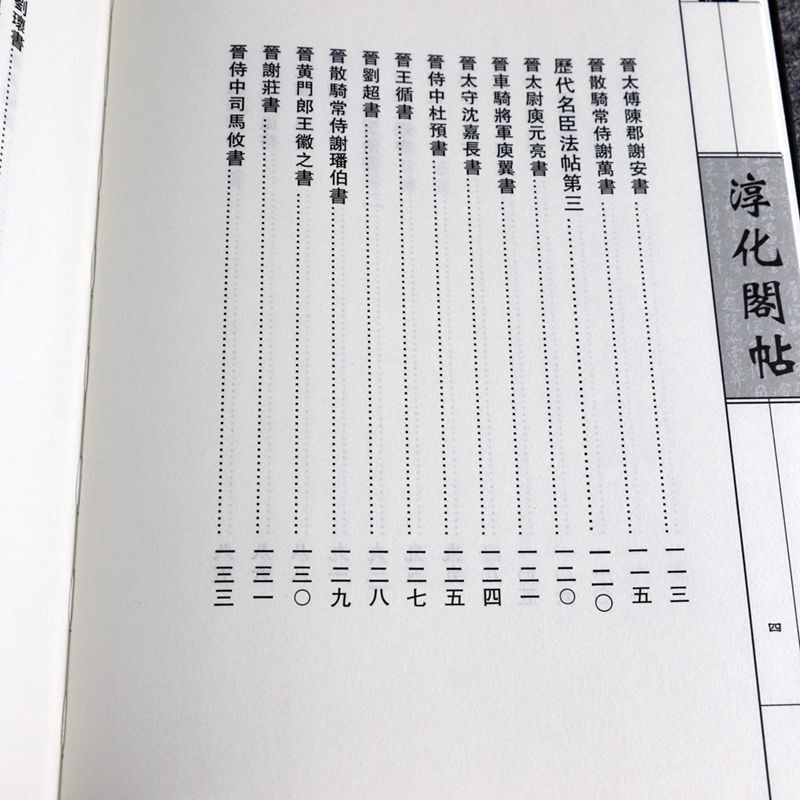 淳化閣帖
四
晉太傅陳郡謝安書……一一三
晉散騎常侍謝萬書……一一五
歷代名臣法帖第三……一二〇
晉太尉庾元亮書……一二〇
晉車騎將軍庾翼書……一二一
晉太守沈嘉長書……一二四
晉侍中杜預書……一二五
晉王循書……一二七
晉劉超書……一二八
晉散騎常侍謝璠伯書……一二九
晉黄門郎王徽之書……一三〇
晉謝莊書……一三一
晉侍中司馬攸書……一三三